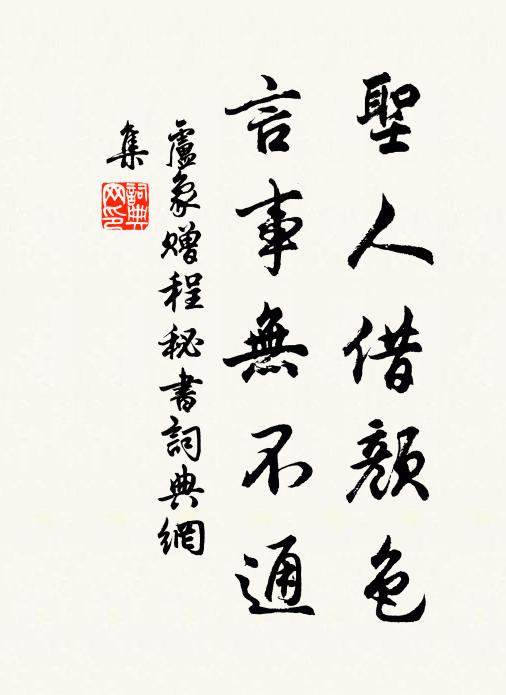 聖人借顏色
言事無不通
盧象贈程秘書詞典網
集
詞典
网印